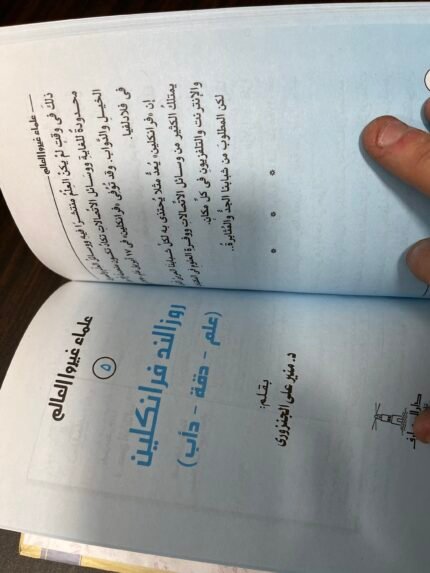 علماء غيروا العالم
ذلك فى وقت لم يكن العلم منتشرًا فيه ووسائل
محدودة للغاية ووسائل الاتصالات تكاد تكون
الخيل والدواب. وقد توفى «فرانكلين» فى ١٧
فى فلادلفيا.
إن «فرانكلين» يعد مثلا يُحتذى به لكل شبابنا
يمتلك الكثير من وسائل الاتصالات ووفرة العلوم فى
والإنترنت والتلفزيون فى كل مكان.
لكن المطلوب من شبابنا الجدُّ والمثابرة..
* * *
علماء غيروا العالم
٥
روزالند فرانكلين
(علم - دقة - دأب)
بقلم:
د. منير على الجنزورى